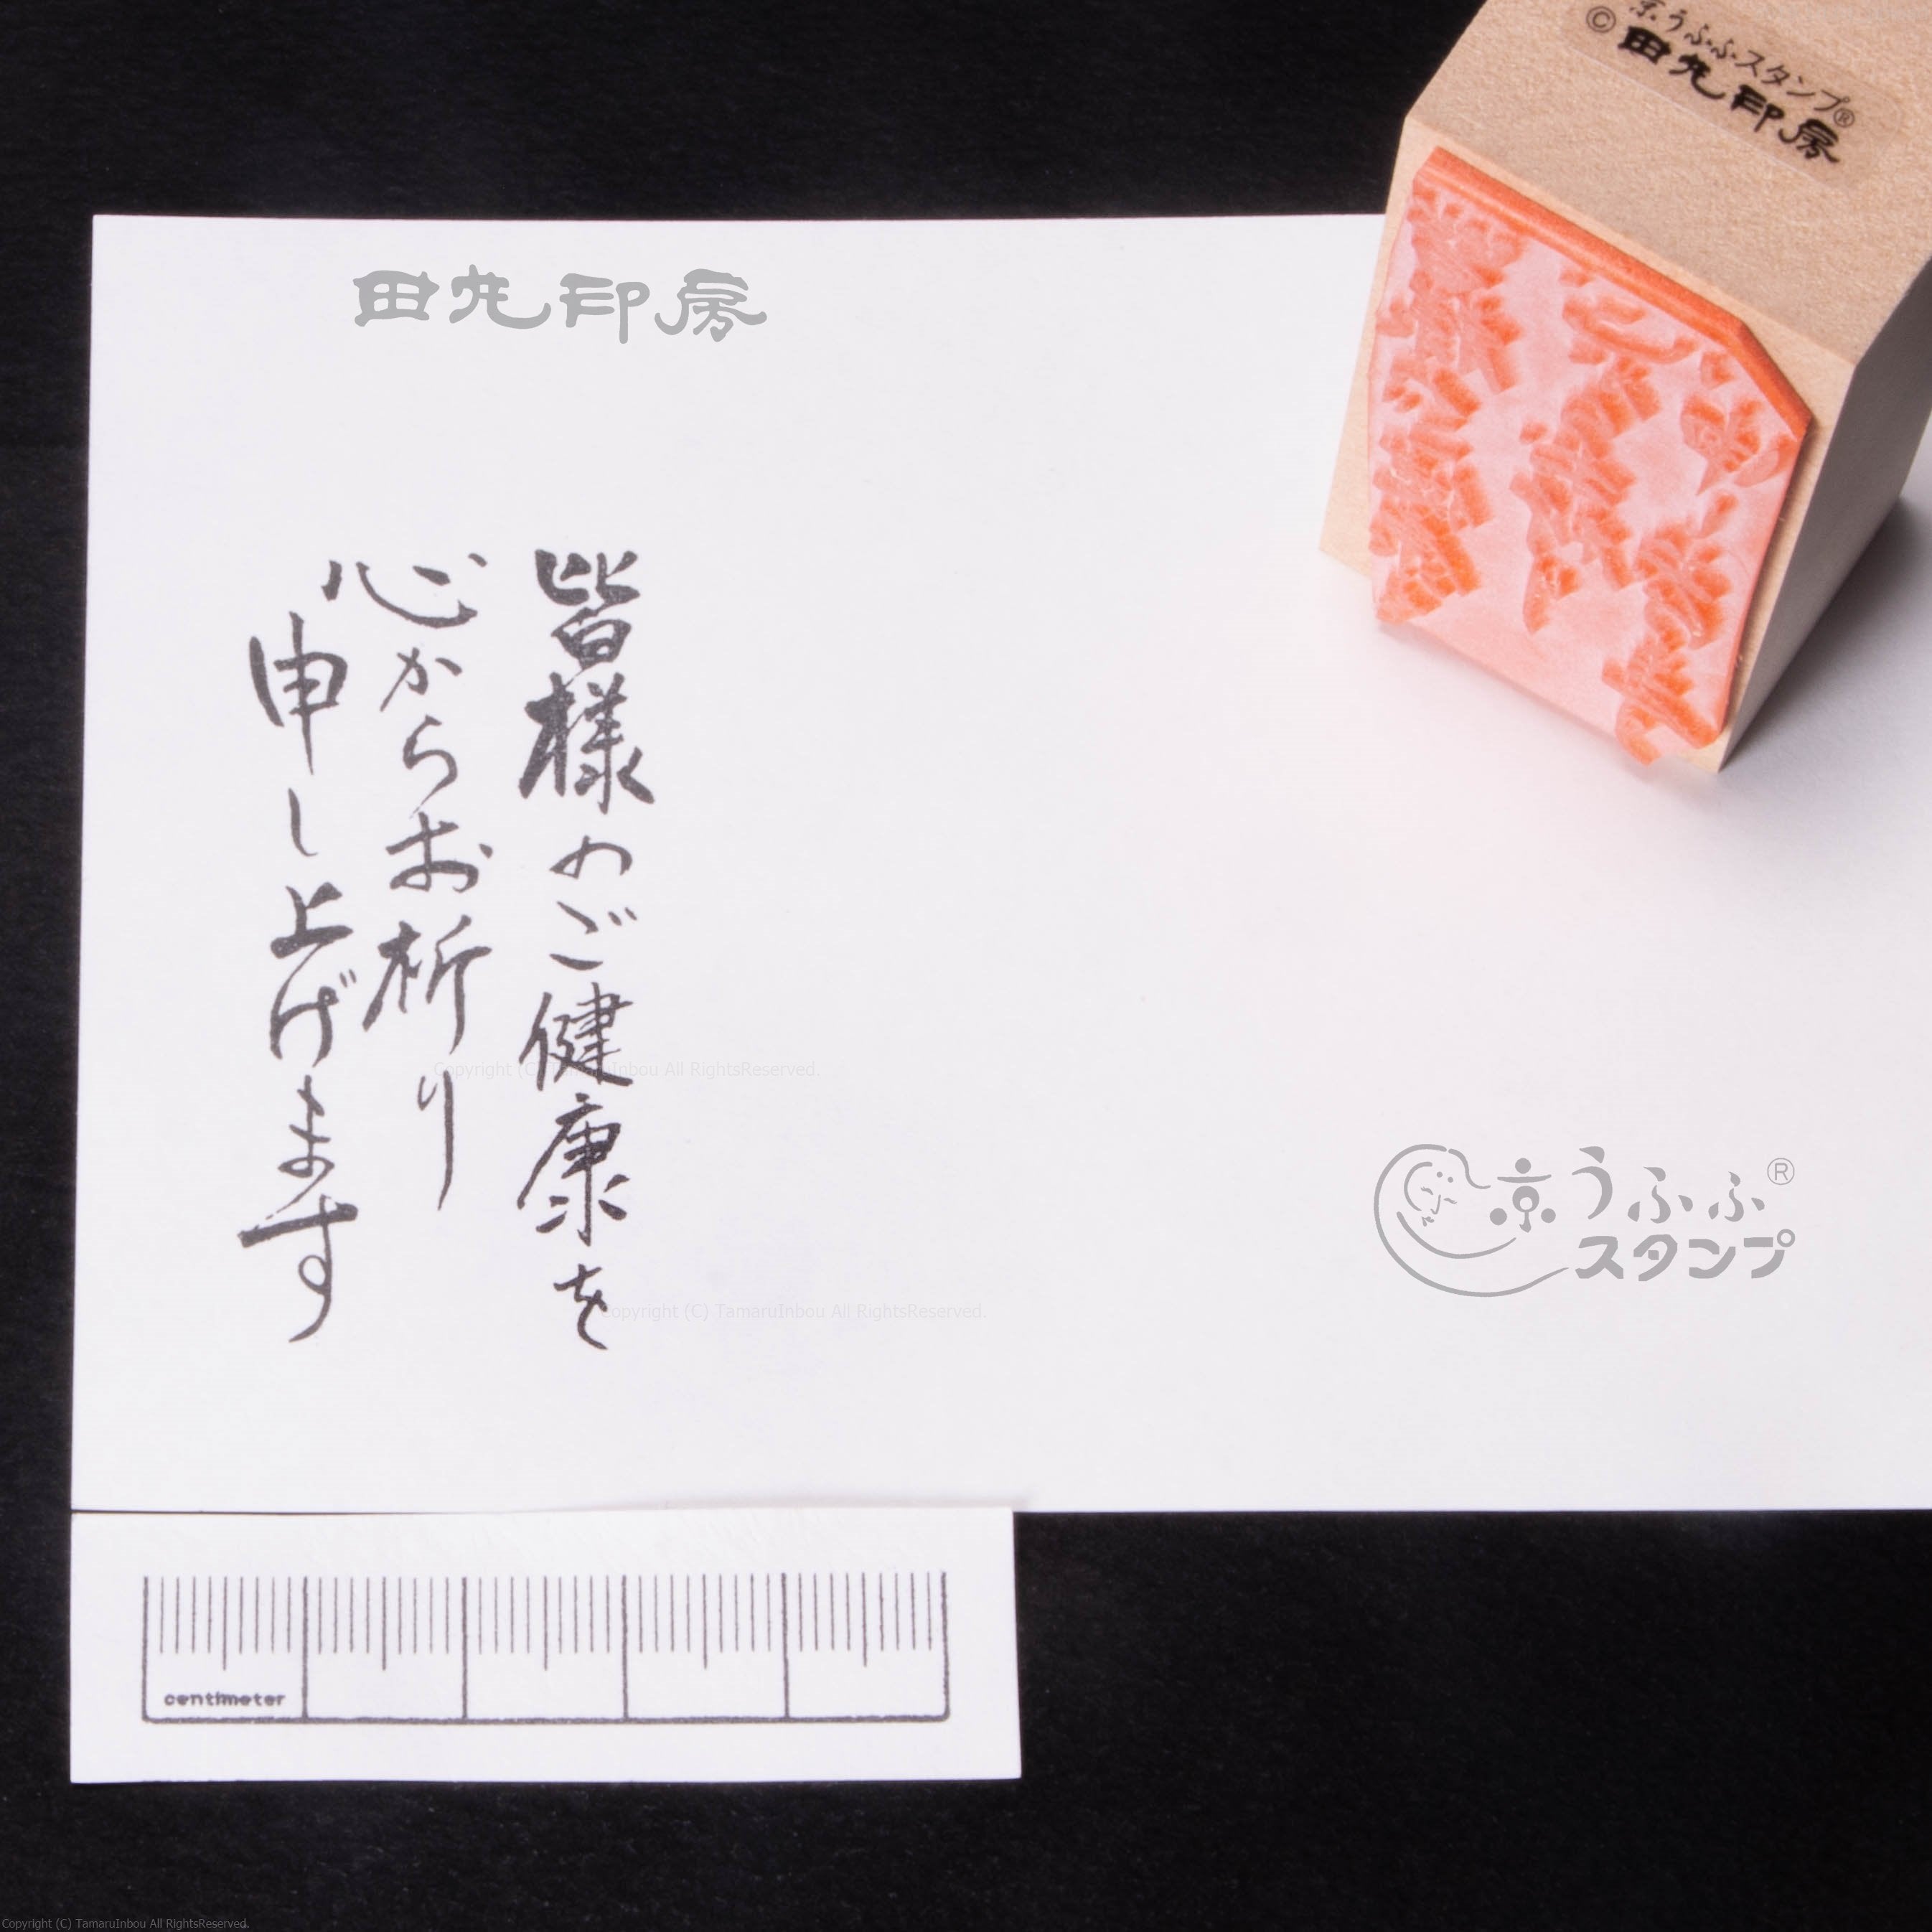 京うふふスタンプ®
©田丸印房
田丸印房
皆様のご健康を
心からお祈り
申し上げます
Copyright (C) TamaruInbou All RightsReserved.
京うふふ®
スタンプ
Copyright (C) TamaruInbou All RightsReserved.
centimeter
Copyright (C) TamaruInbou All RightsReserved.